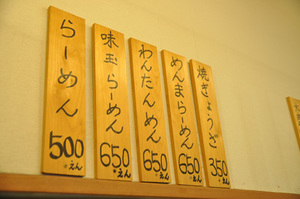 らーめん
500
えん
味玉らーめん
650
えん
わんたんめん
650
えん
めんまらーめん
650
えん
焼ぎょうざ
350
えん